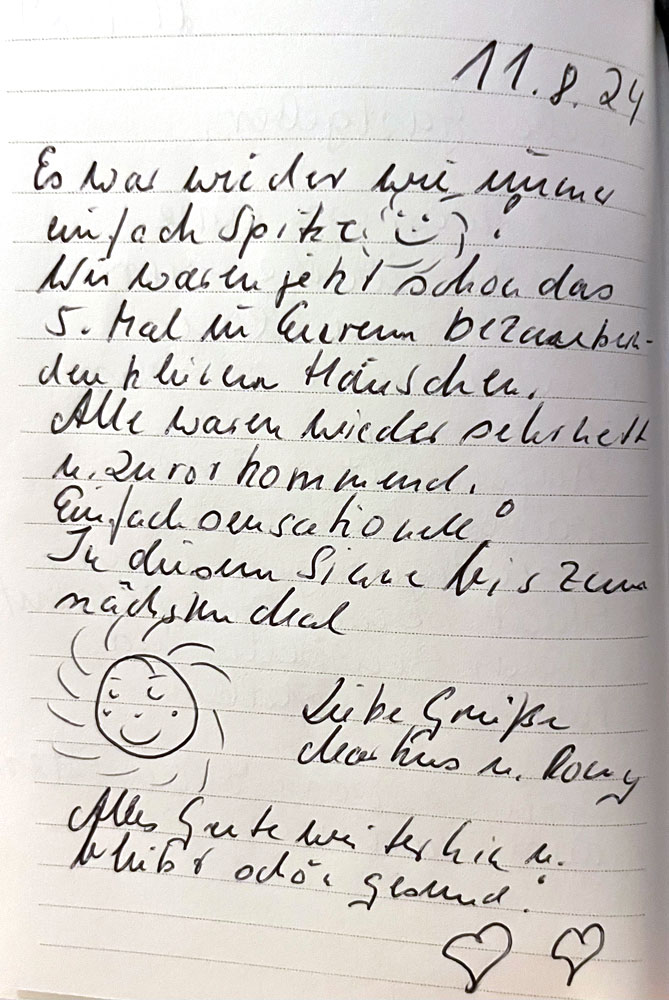 11.8.24
Es war wieder wie immer
einfach Spitze!
Wir waren jetzt schon das
5. Mal in Eurem bezaubern-
den kleinen Häuschen.
Alle waren wieder sehr nett
u. zuvorkommend.
Einfach sensationell!
In diesem Sinne bis zum
nächsten Mal
Liebe Grüße
Markus u. Romy
Alles Gute weiterhin u.
bleibt schön gesund!